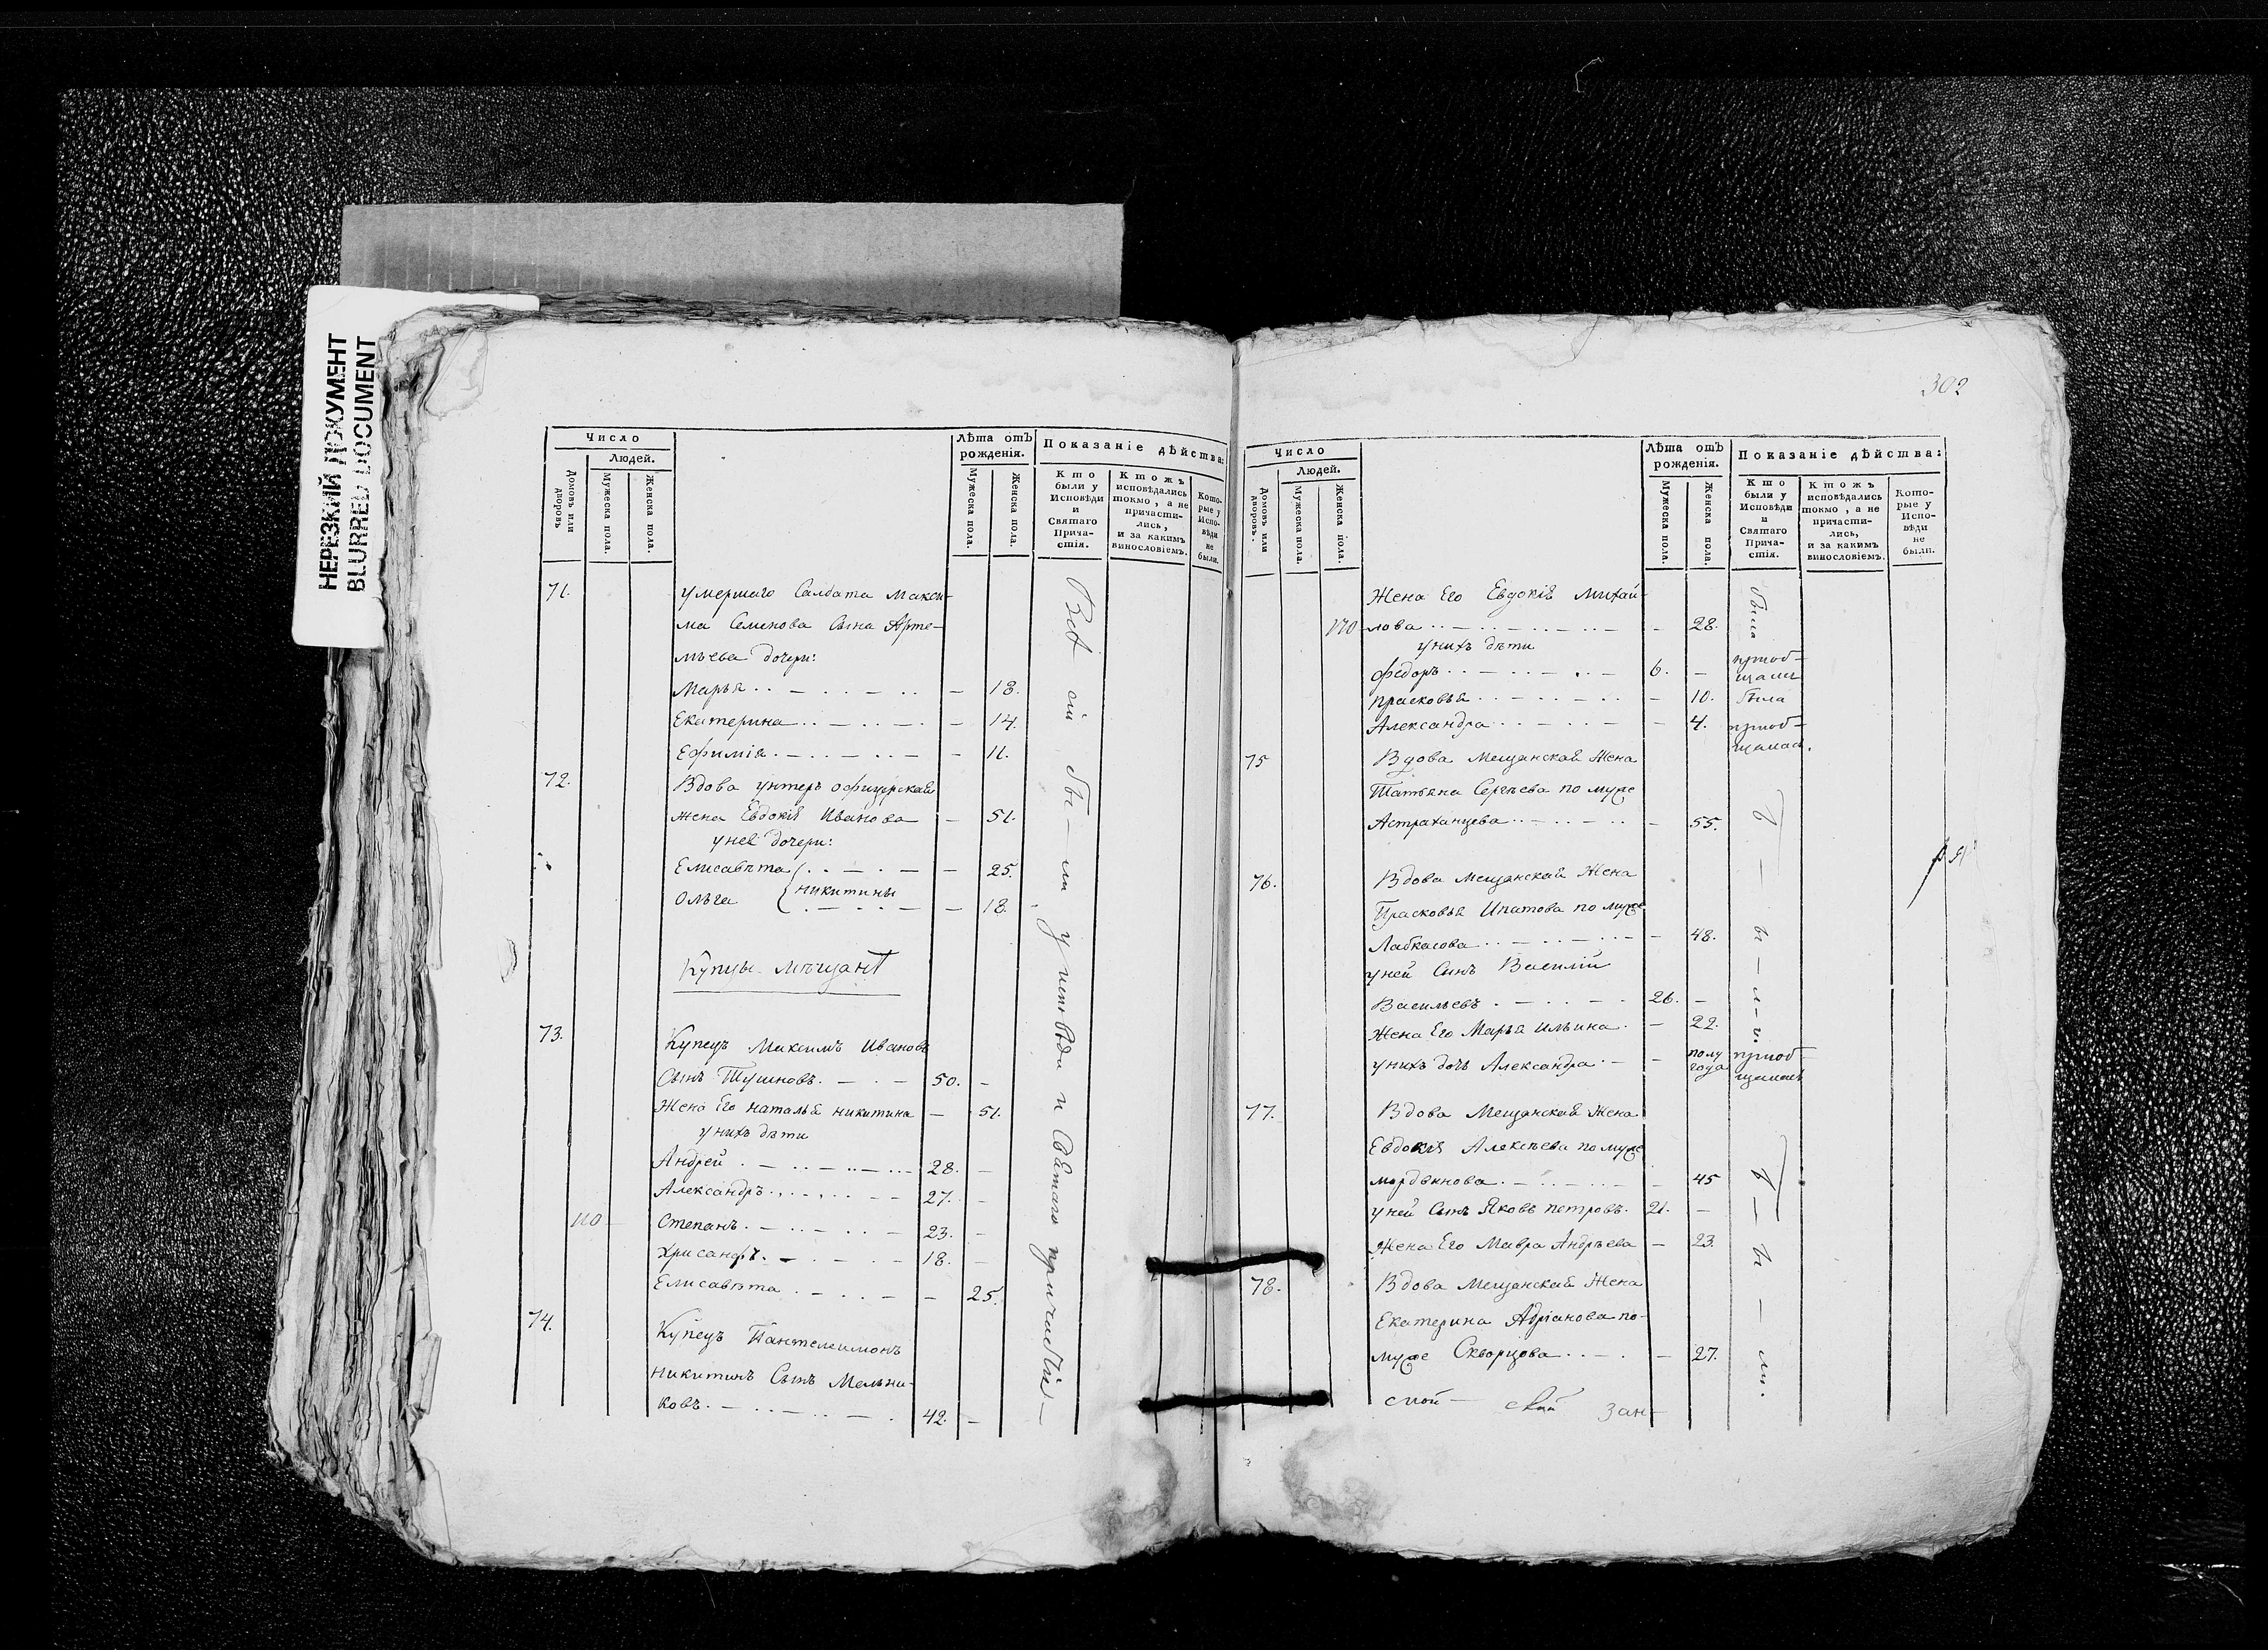 НЕРЕЗКИЙ ДОКУМЕНТ
BLURRED DOCUMENT
Число
Людей.
Домовъ или дворовъ
Мужеска пола.
Женска пола.
Лѣта отъ рожденія.
Мужеска пола.
Женска пола.
Показаніе дѣйства:
Кто были у Исповѣди и Святаго Прича-стія.
Ктожъ исповѣдались токмо, а не причасти-лись, и за какимъ винословіемъ.
Кото-рые у Испо-вѣди не были.
71. умершаго Салдата Макси-
ма Семенова Сына Арте-
мьева дочери:
Марья - 18.
Екатерина - 14.
Ефимія - 11.
72. Вдова унтеръ офицерская
жена Евдокія Иванова - 51.
у нея дочери:
Елисавѣта - 25.
Никитины
Ольга - 18.
Купцы мѣщанѣ
73. Купецъ Максимъ Ивановъ
Сынъ Тушновъ. 50. -
Жена Его Наталья Никитина - 51.
у нихъ дѣти
Андрей 28. -
Александръ 27. -
110 Степанъ 23. -
Хрисанфъ 18. -
Елисавѣта - 25.
74. Купецъ Пантелеимонъ
Никитинъ Сынъ Мельни-
ковъ 42. -
Всѣ сіи бы-ли у исповѣди и Святаго причастія
302
Число
Людей.
Домовъ или дворовъ.
Мужеска пола.
Женска пола.
Лѣта отъ рожденія.
Мужеска пола.
Женска пола.
Показаніе дѣйства:
Кто были у Исповѣди и Святаго Прича-стія.
Ктожъ исповѣдались токмо, а не причасти-лись, и за какимъ винословіемъ.
Кото-рые у Испо-вѣди не были.
Жена Его Евдокія Михай-
170 лова - 28. была
у нихъ дѣти
Федоръ 6. - приоб-
Прасковья - 10. была
Александра - 4. приоб-
щалась.
75 Вдова Мещанская Жена
Татьяна Сергѣева по муже
Астраханцева - 55.
76. Вдова Мещанская Жена
Прасковья Ипатова по муже
Лабкасова - 48.
у ней Сынъ Василій
Васильевъ 26. -
Жена Его Марья Ильина - 22.
у нихъ дочь Александра - полу года приоб-
77. Вдова Мещанская Жена
Евдокія Алексѣева по муже
Мордвинова - 45
у ней Сынъ Яковъ Петровъ. 21. -
Жена Его Мавра Андрѣева - 23.
78. Вдова Мещанская Жена
Екатерина Адріанова по-
муже Скворцова - 27.
б - ы - л - и.
б - ы - ли.